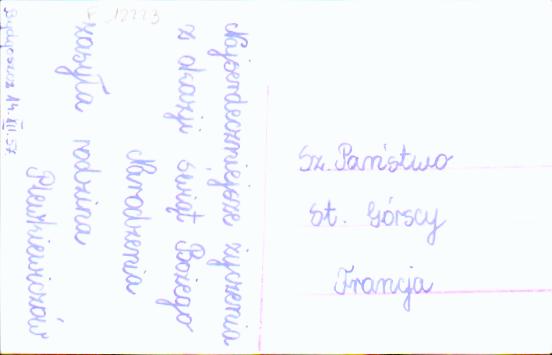 F 12223
Najserdeczniejsze życzenia
z okazji świąt Bożego
Narodzenia
zasyła rodzina
Bydgoszcz 14.XII.57
Sz. Państwo
St. Górscy
Francja